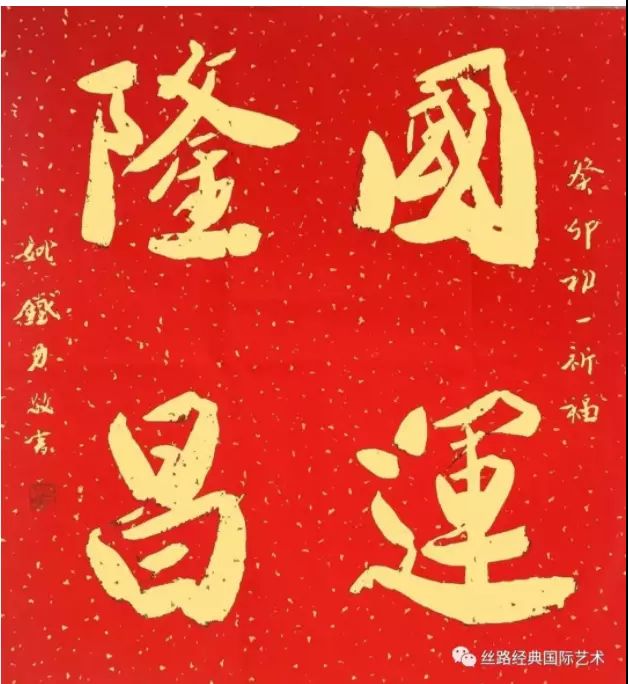 癸卯初一祈福
國運
隆昌
姚鐵力敬書
丝路经典国际艺术